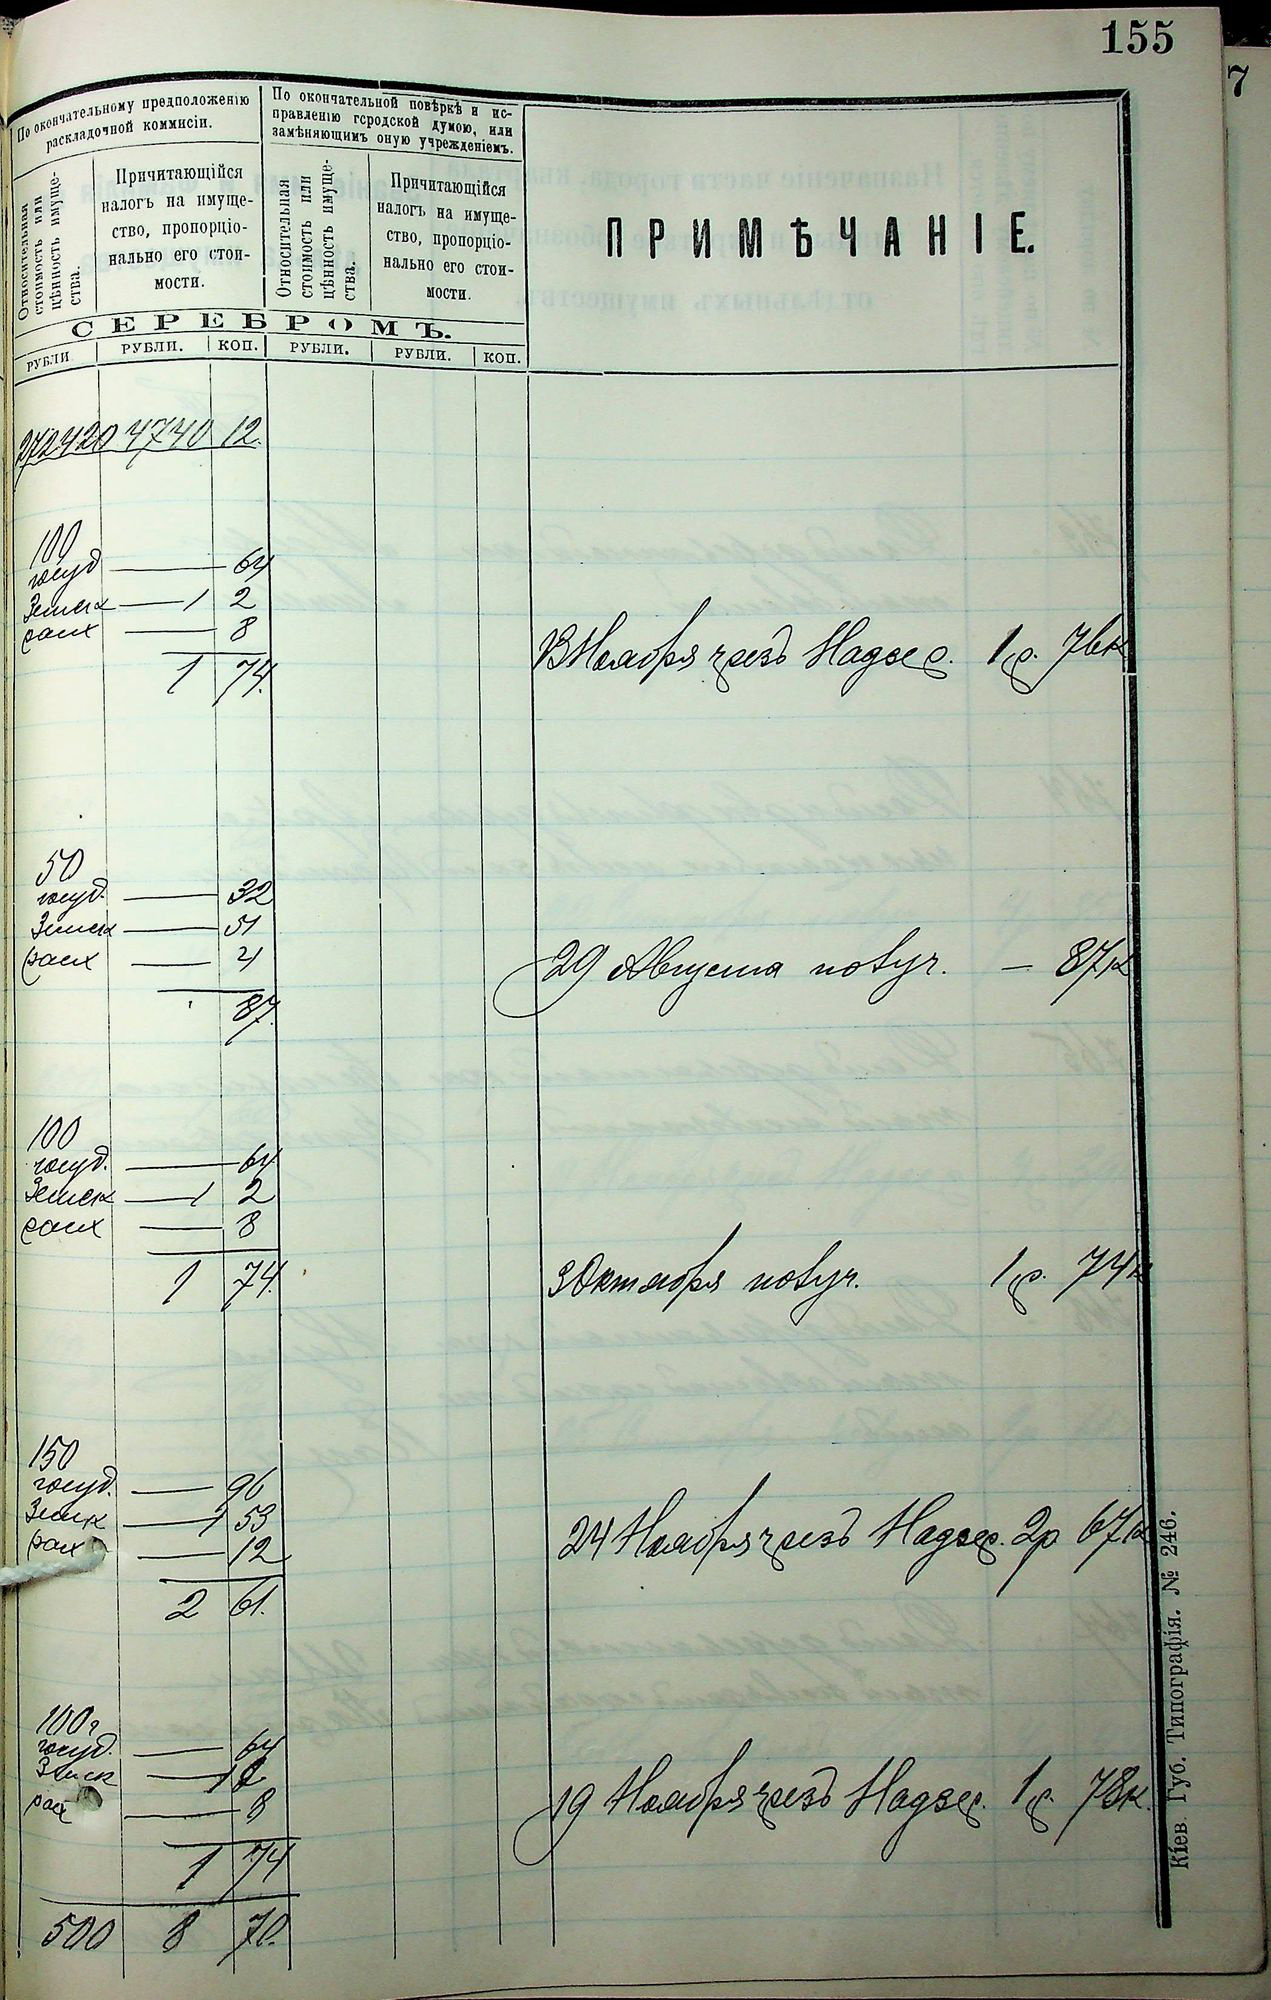 155
7
По окончательному предположенію
раскладочной коммисіи.
По окончательной повѣркѣ и ис-
правленію городской думою, или
замѣняющимъ оную учрежденіемъ.
Относительная
стоимость или
цѣнность имуще-
ства.
Причитающійся
налогъ на имуще-
ство, пропорціо-
нально его стои-
мости.
Относительная
стоимость или
цѣнность имуще-
ства.
Причитающійся
налогъ на имуще-
ство, пропорціо-
нально его стои-
мости.
ПРИМѢЧАНІЕ.
СЕРЕБРОМЪ.
РУБЛИ РУБЛИ. КОП. РУБЛИ. РУБЛИ. КОП.
272420 4740 12.
100
госуд — 64
Земск — 1 2
расх — 8
1 74.
13 Ноября чрезъ Надзер. 1 р. 76 к
50
госуд. — 32
Земск — 51
расх — 4
87.
29 Августа получ. — 87 к
100
госуд. — 64
Земск — 1 2
расх — 8
1 74.
3 Октября получ. 1 р. 74 к
150
госуд. — 96
Земск — 1 53
расх — 12
2 61.
24 Ноября чрезъ Надзер. 2 р 67 к
100
госуд. — 64
Земск — 1 2
расх — 8
1 74
19 Ноября чрезъ Надзер. 1 р. 78 к.
500 8 70.
Кіев. Губ. Типографія. № 246.